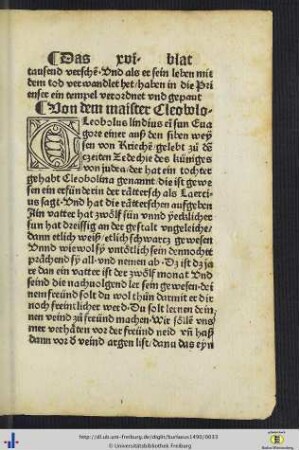 Das xvi· blat
tausend versch̄e·Vnd als er sein leben mit
dem tod verwandlet het/haben in die Pri
enser ein tempel verordnet vnd gepaut
Von dem maister Cleowlo·
Cleobolus lindius ein sun Eua
gore einer auß den siben wey
sen von Krieche· gelebt zu dē
czeiten Zedechie des küniges
von iudea/der hat ein tochter
gehabt Cleobolina genannt·die ist gewe
sen ein erfünderin der rättersch als Laerci
us sagt·Vnd hat die rätterschen aufgeben
Ain vatter hat zwölf sün vnnd yecklicher
sun hat dreissig an der gestalt vngeleiche/
dann etlich weiß/etlich schwarcz gewesen
Vnnd wiewol sy vntötlich sein dennocht
prächend sy all·vnd nemen ab·Dz ist dz ja
re dan ein vatter ist der zwölf monat Vnd
seind die nachuolgend ler sein gewesen·dei
nem freünd solt du wol thün darmit er dir
noch freintlicher werd·Du solt lernen dein
nen veind zů freünd machen·Wir söllē vns
mer verhüten vor der freünd neid vn̄ haß
dann vor d̄ veind argen list·dann das eyn
http://dl.ub.uni-freiburg.de/diglit/burlaeus1490/0033
© Universitätsbibliothek Freiburg
gefördert durch
Baden-Württemberg